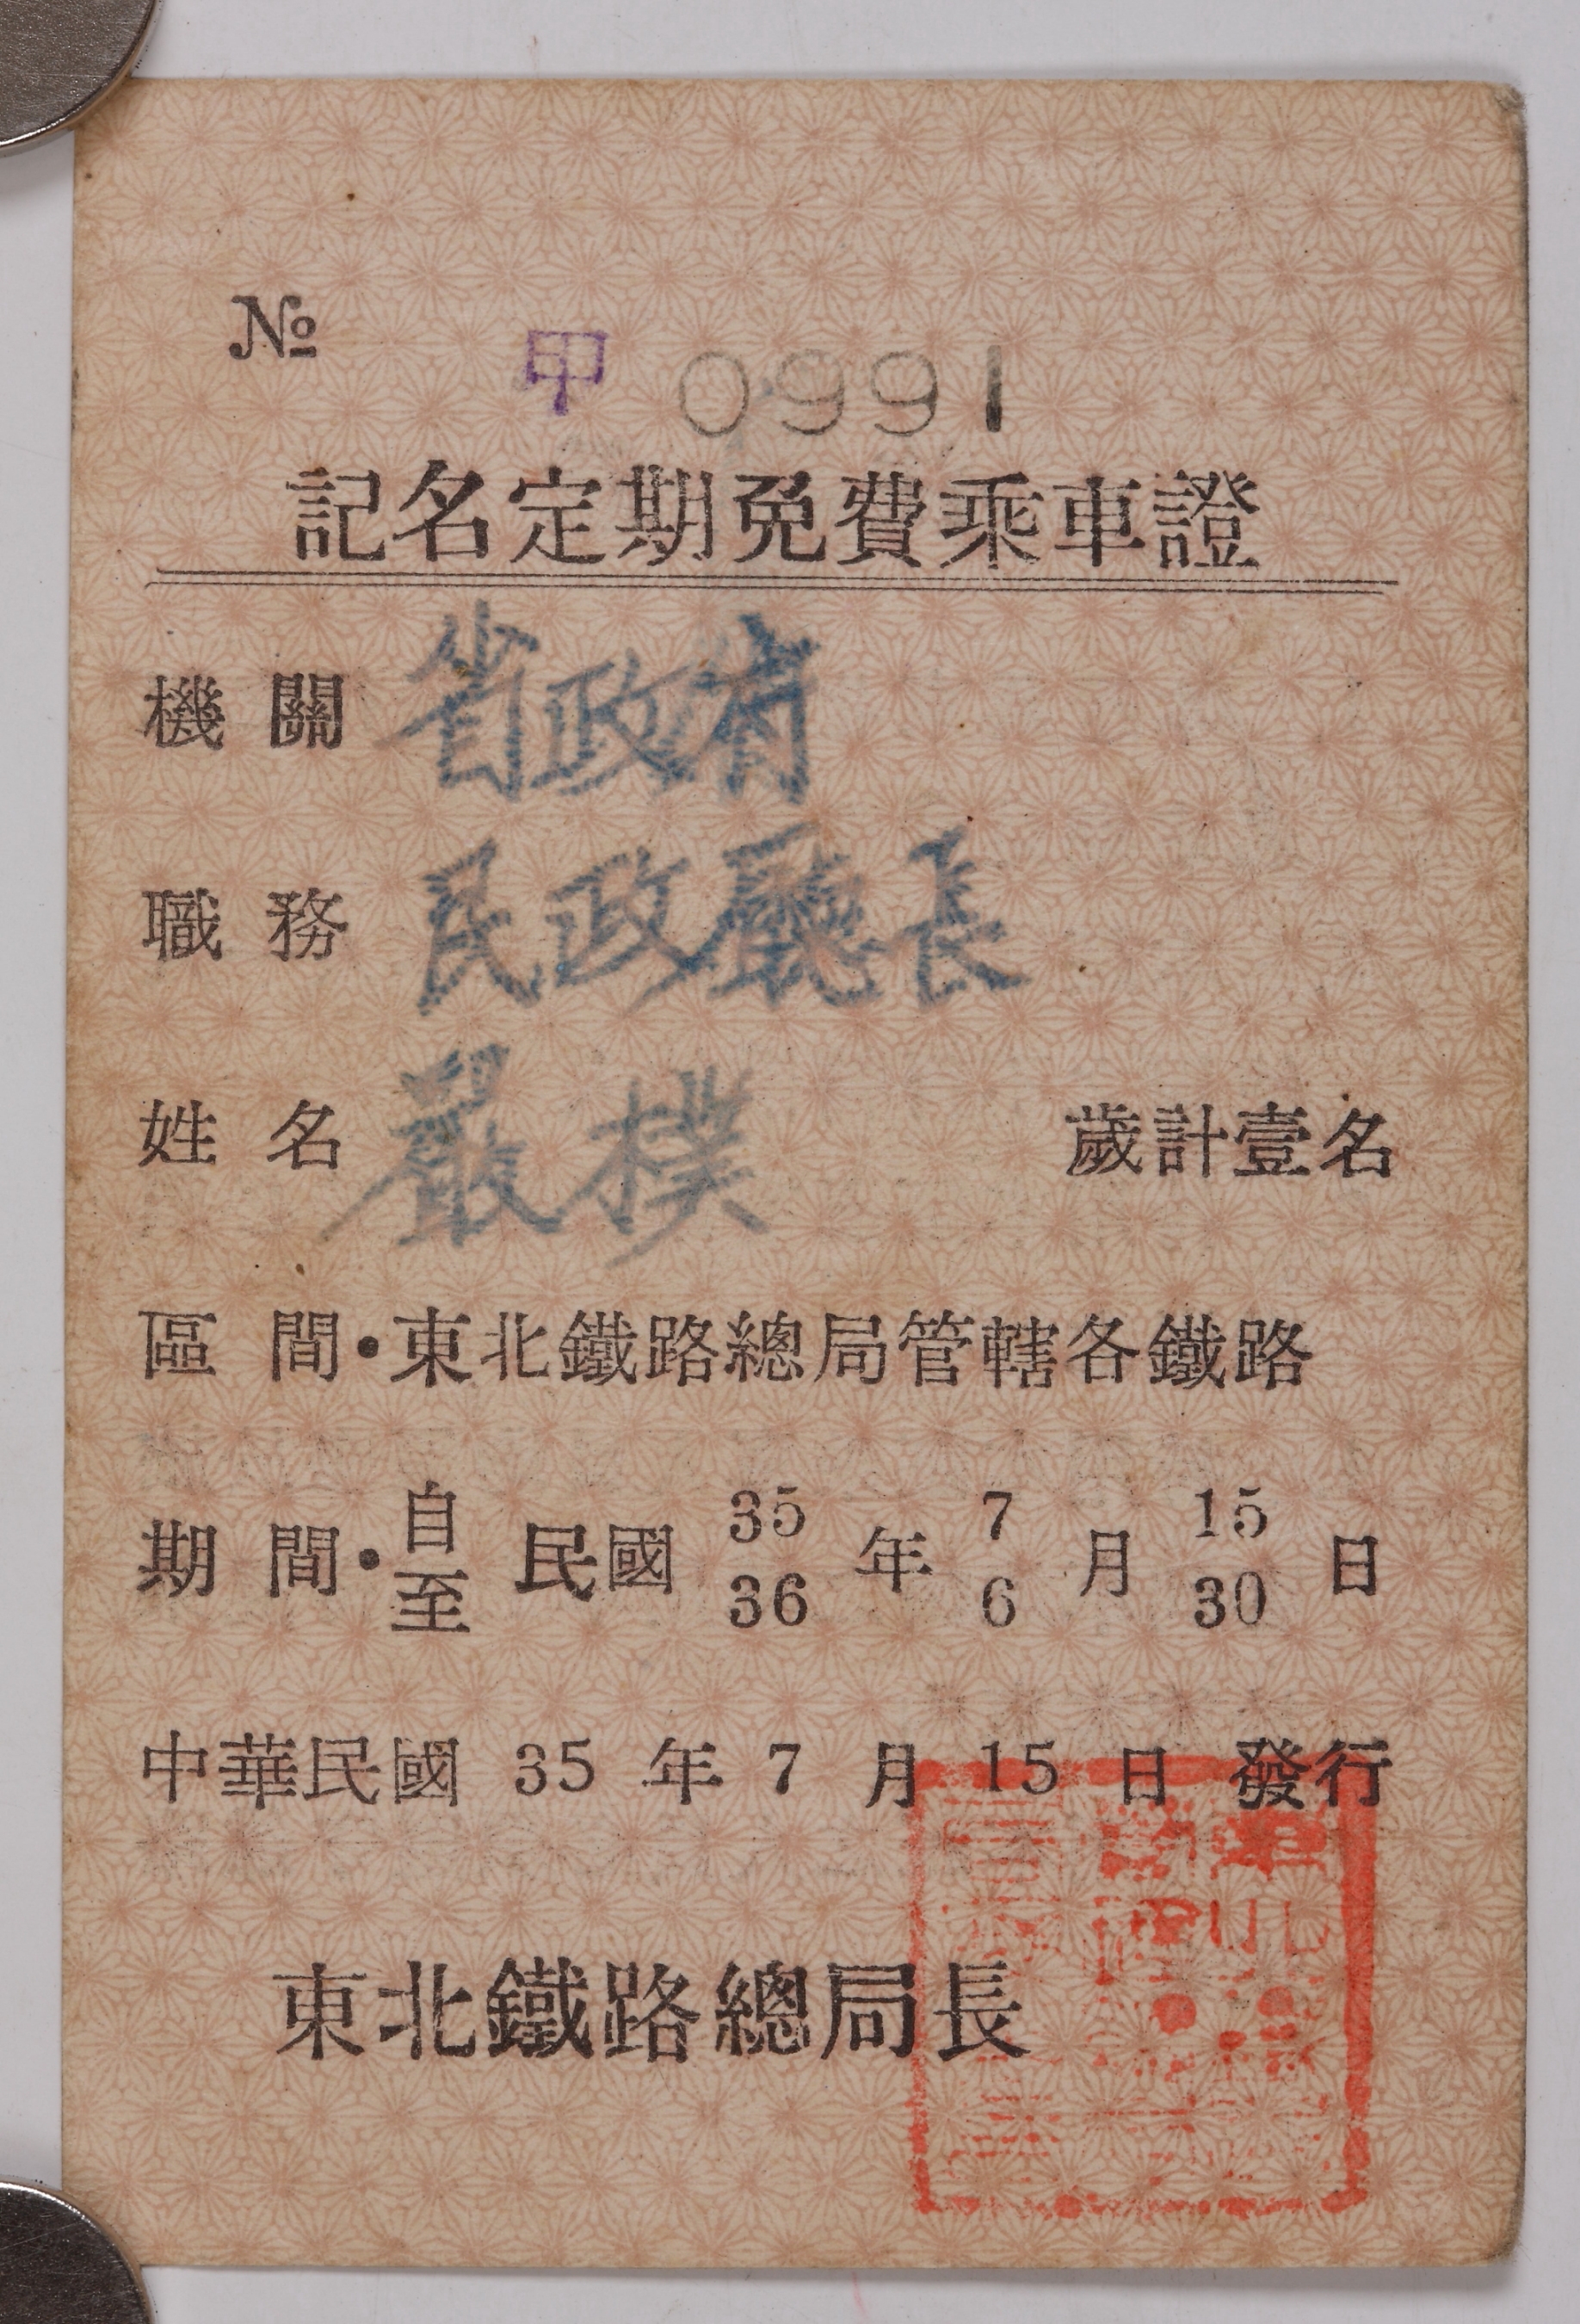 №
甲 0991
記名定期免費乘車證
機關 省政府
職務 民政廳長
姓名 嚴樸 歲計壹名
區間・東北鐵路總局管轄各鐵路
期間・自至 民國 35 36 年 7 6 月 15 30 日
中華民國 35 年 7 月 15 日 發行
東北鐵路總局長